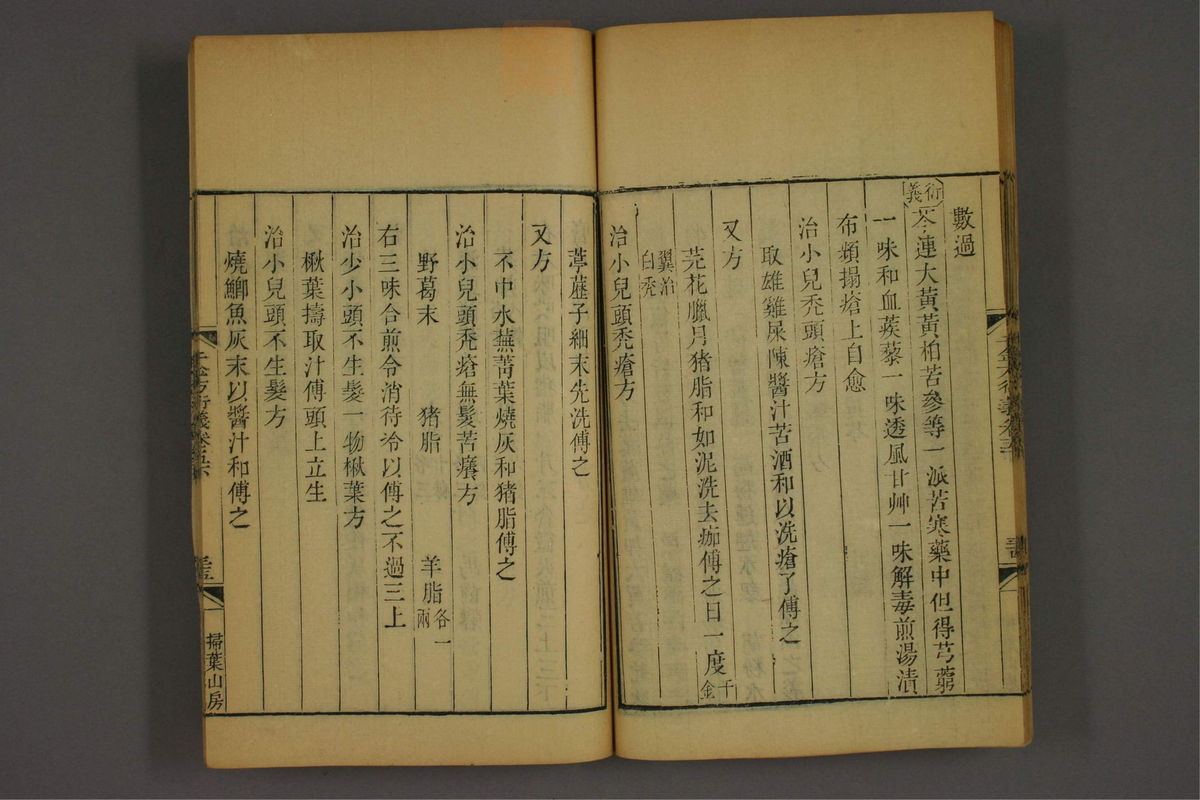 數過
衍義 芩連大黃黃柏苦參等一派苦寒藥中但得芎藭
一味和血蒺藜一味透風甘艸一味解毒煎湯漬
布頻搨瘡上自愈
治小兒禿頭瘡方
取雄雞屎陳醬汁苦酒和以洗瘡了傅之
又方
芫花臘月猪脂和如泥洗去痂傅之日一度千金
翼治白禿
治小兒頭禿瘡方
葶藶子細末先洗傅之
又方
不中水蕪菁葉燒灰和猪脂傅之
治小兒頭禿瘡無髮苦癢方
野葛末 猪脂 羊脂各一兩
右三味合煎令消待冷以傅之不過三上
治少小頭不生髮一物楸葉方
楸葉擣取汁傅頭上立生
治小兒頭不生髮方
燒鯽魚灰末以醬汁和傅之
千金方衍義卷五下
掃葉山房